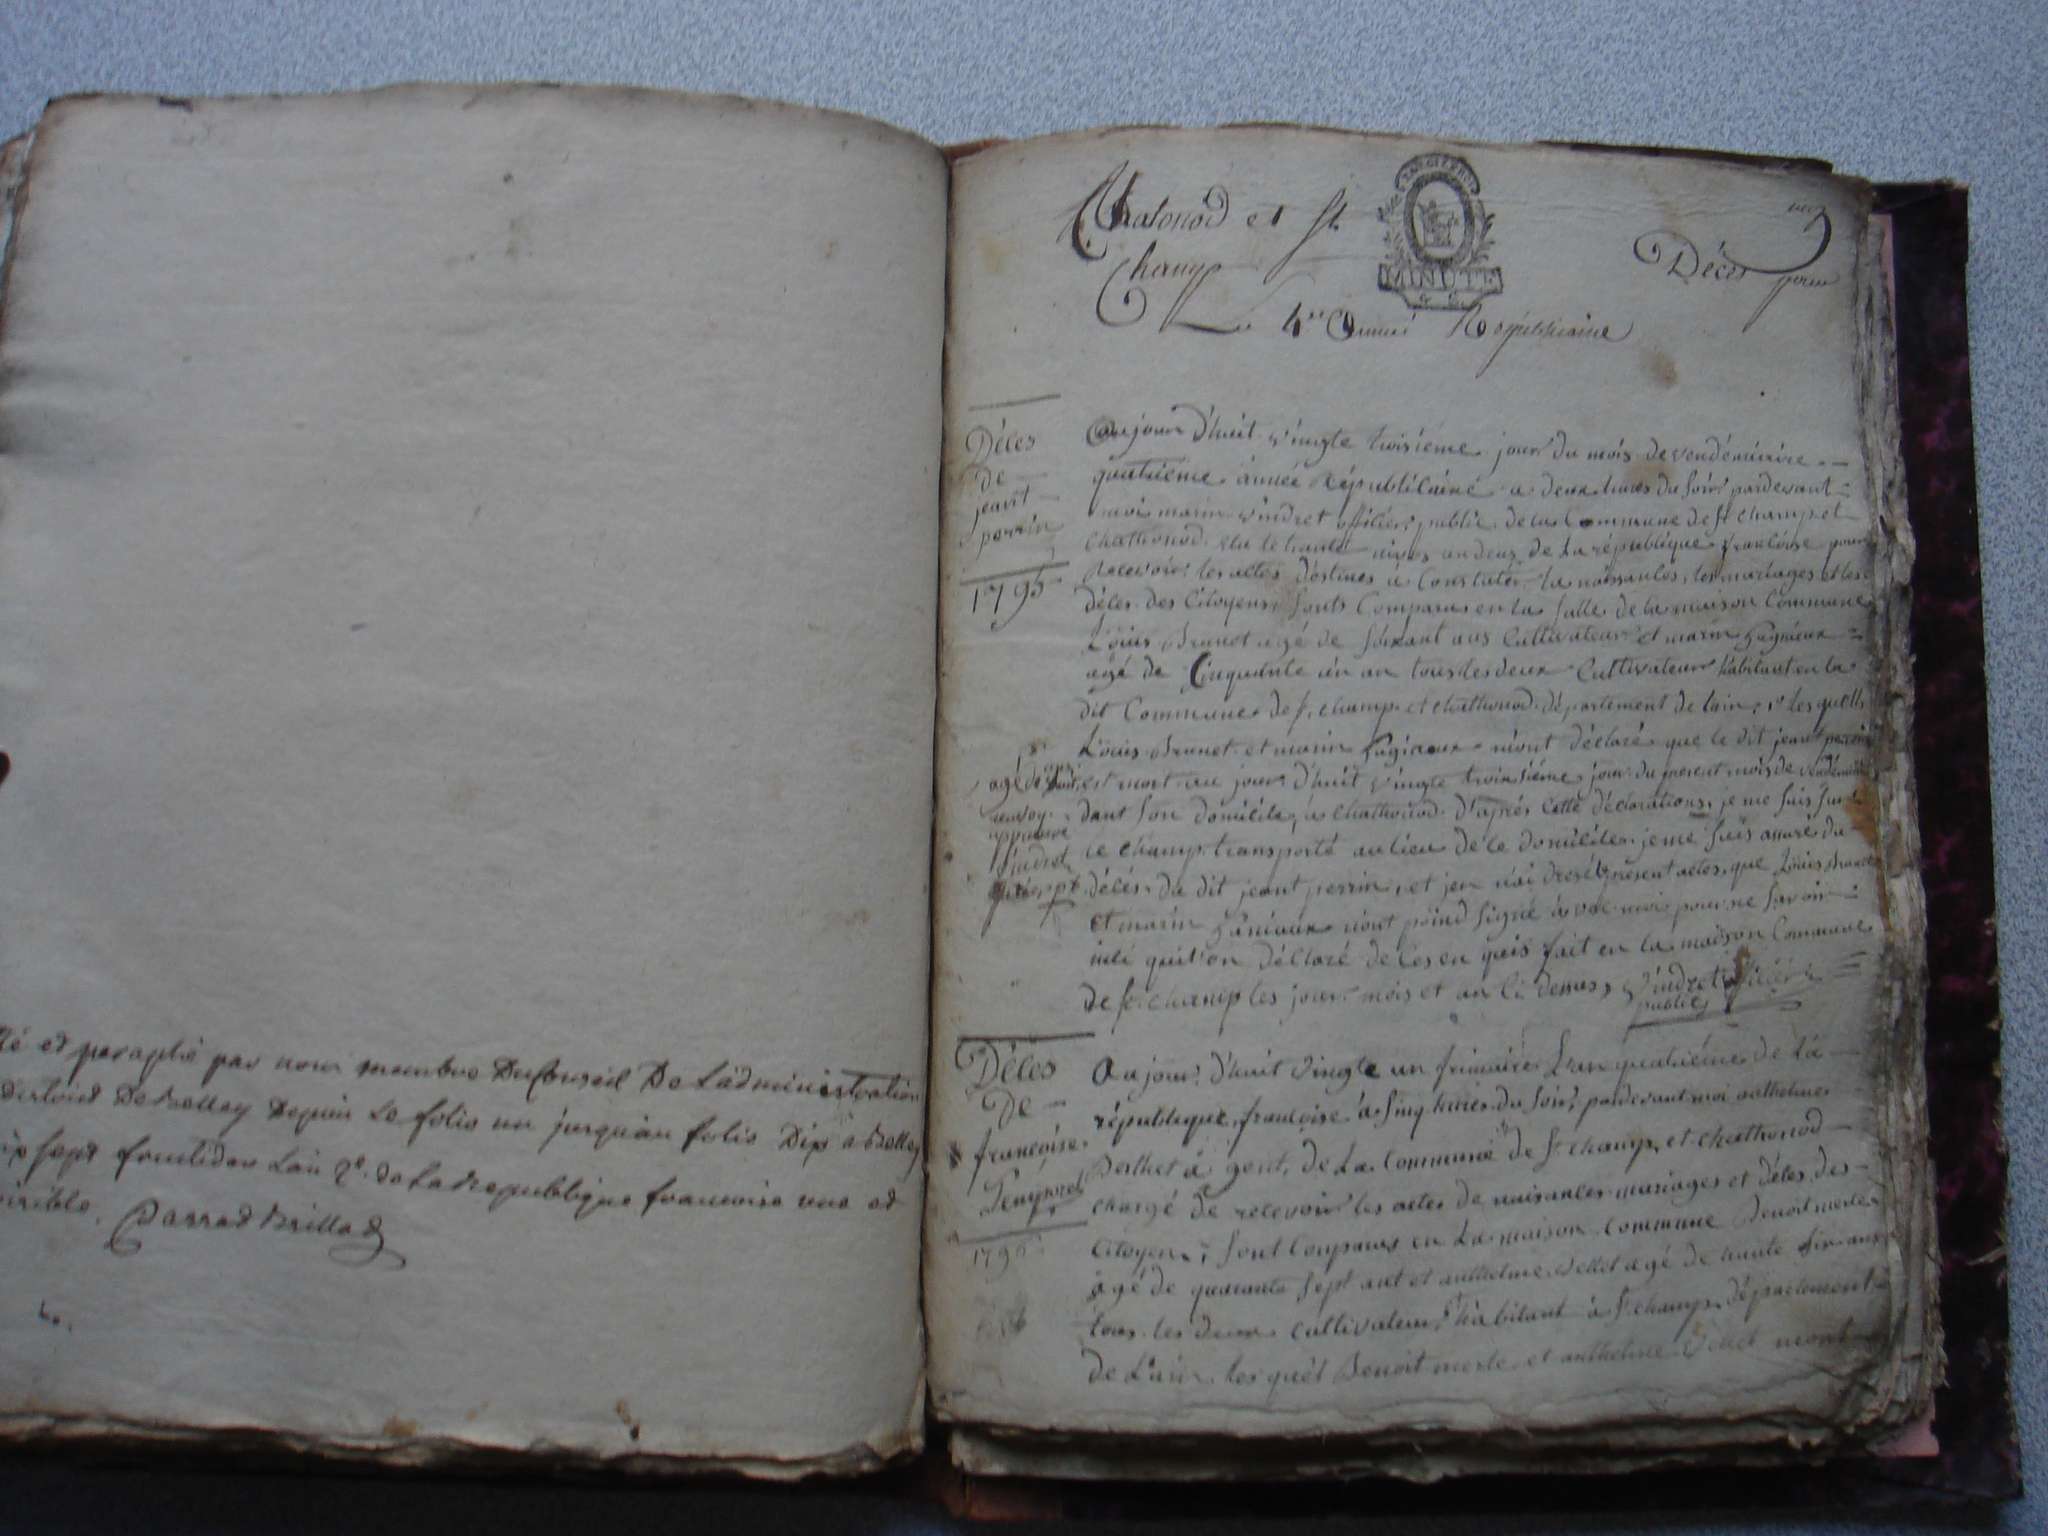 té et paraphé par nous membre Du Conseil De Ladministration
De Belley Depuis Le folio un jusquau folio Dix a Belley
sept fructidor Lan 2e. de La Republique francaise une et
Darrad Brillad
Chatonod et St.
Champ
MINUTE
Décès pour
4me Année Républicaine
Déces
de
jeant
perrin
1795
aujour d'huit vingte troisieme jour du mois de vendémiaire
quatrieme année Républicaine a deux heures du soir pardevant
moi marin vindret officier public de la Commune de st champ et
Chathonod elu le trante nivos an deux de la république francoise pour
Recevoir les actes déstinés à Constater la naissances, les mariages et les
déces des Citoyens, sonts Comparus en la salle de la maison Commune
Loüis Brunet agé de soixant ans Cultivateur et marin gagnieux
agé de Cinquante un an tous les deux Cultivateur habitant en la
dit Commune de st. champ et chathonod département de lain, lesquells
Loüis Brunet et marin m'ont déclaré que le dit jeant perrin
agé de
est mort au jour d'huit vingte troisiéme jour du present mois de vendémiaire
dant son domicile, à Chathonod d'aprés Cette déclarations, je me suis sur
approuvé
vindret
le champ transporté au lieu de le domicile, je me suis assuré du
déces du dit jeant perrin, et jen n'ai dresé présent actes, que Loüis Brunet
et marin n'ont poind signé avec moi pour ne savoir
quit'on déclaré de les en quis fait en la maison Commune
de st. champ les jour mois et an Ci dessus, vindret officier
public
Déces
De
françoise
1795
Au jour d'huit vingte un frimaire Lan quatriéme de la
république francoise à sinq heures du soir, pardevant moi anthelme
Berthet à gent, de La Commune de St champ, et chathonod
chargé de recevoir les actes de naisances mariages et déces des
Citoyen, sont Conparus en La maison Commune Benoit merle
agé de quarante sept ant et anthelme agé de trante six ans
tous les deux cultivateur, habitant à St champ, département
de L'ain, les quel Benoit merle et anthelme mont